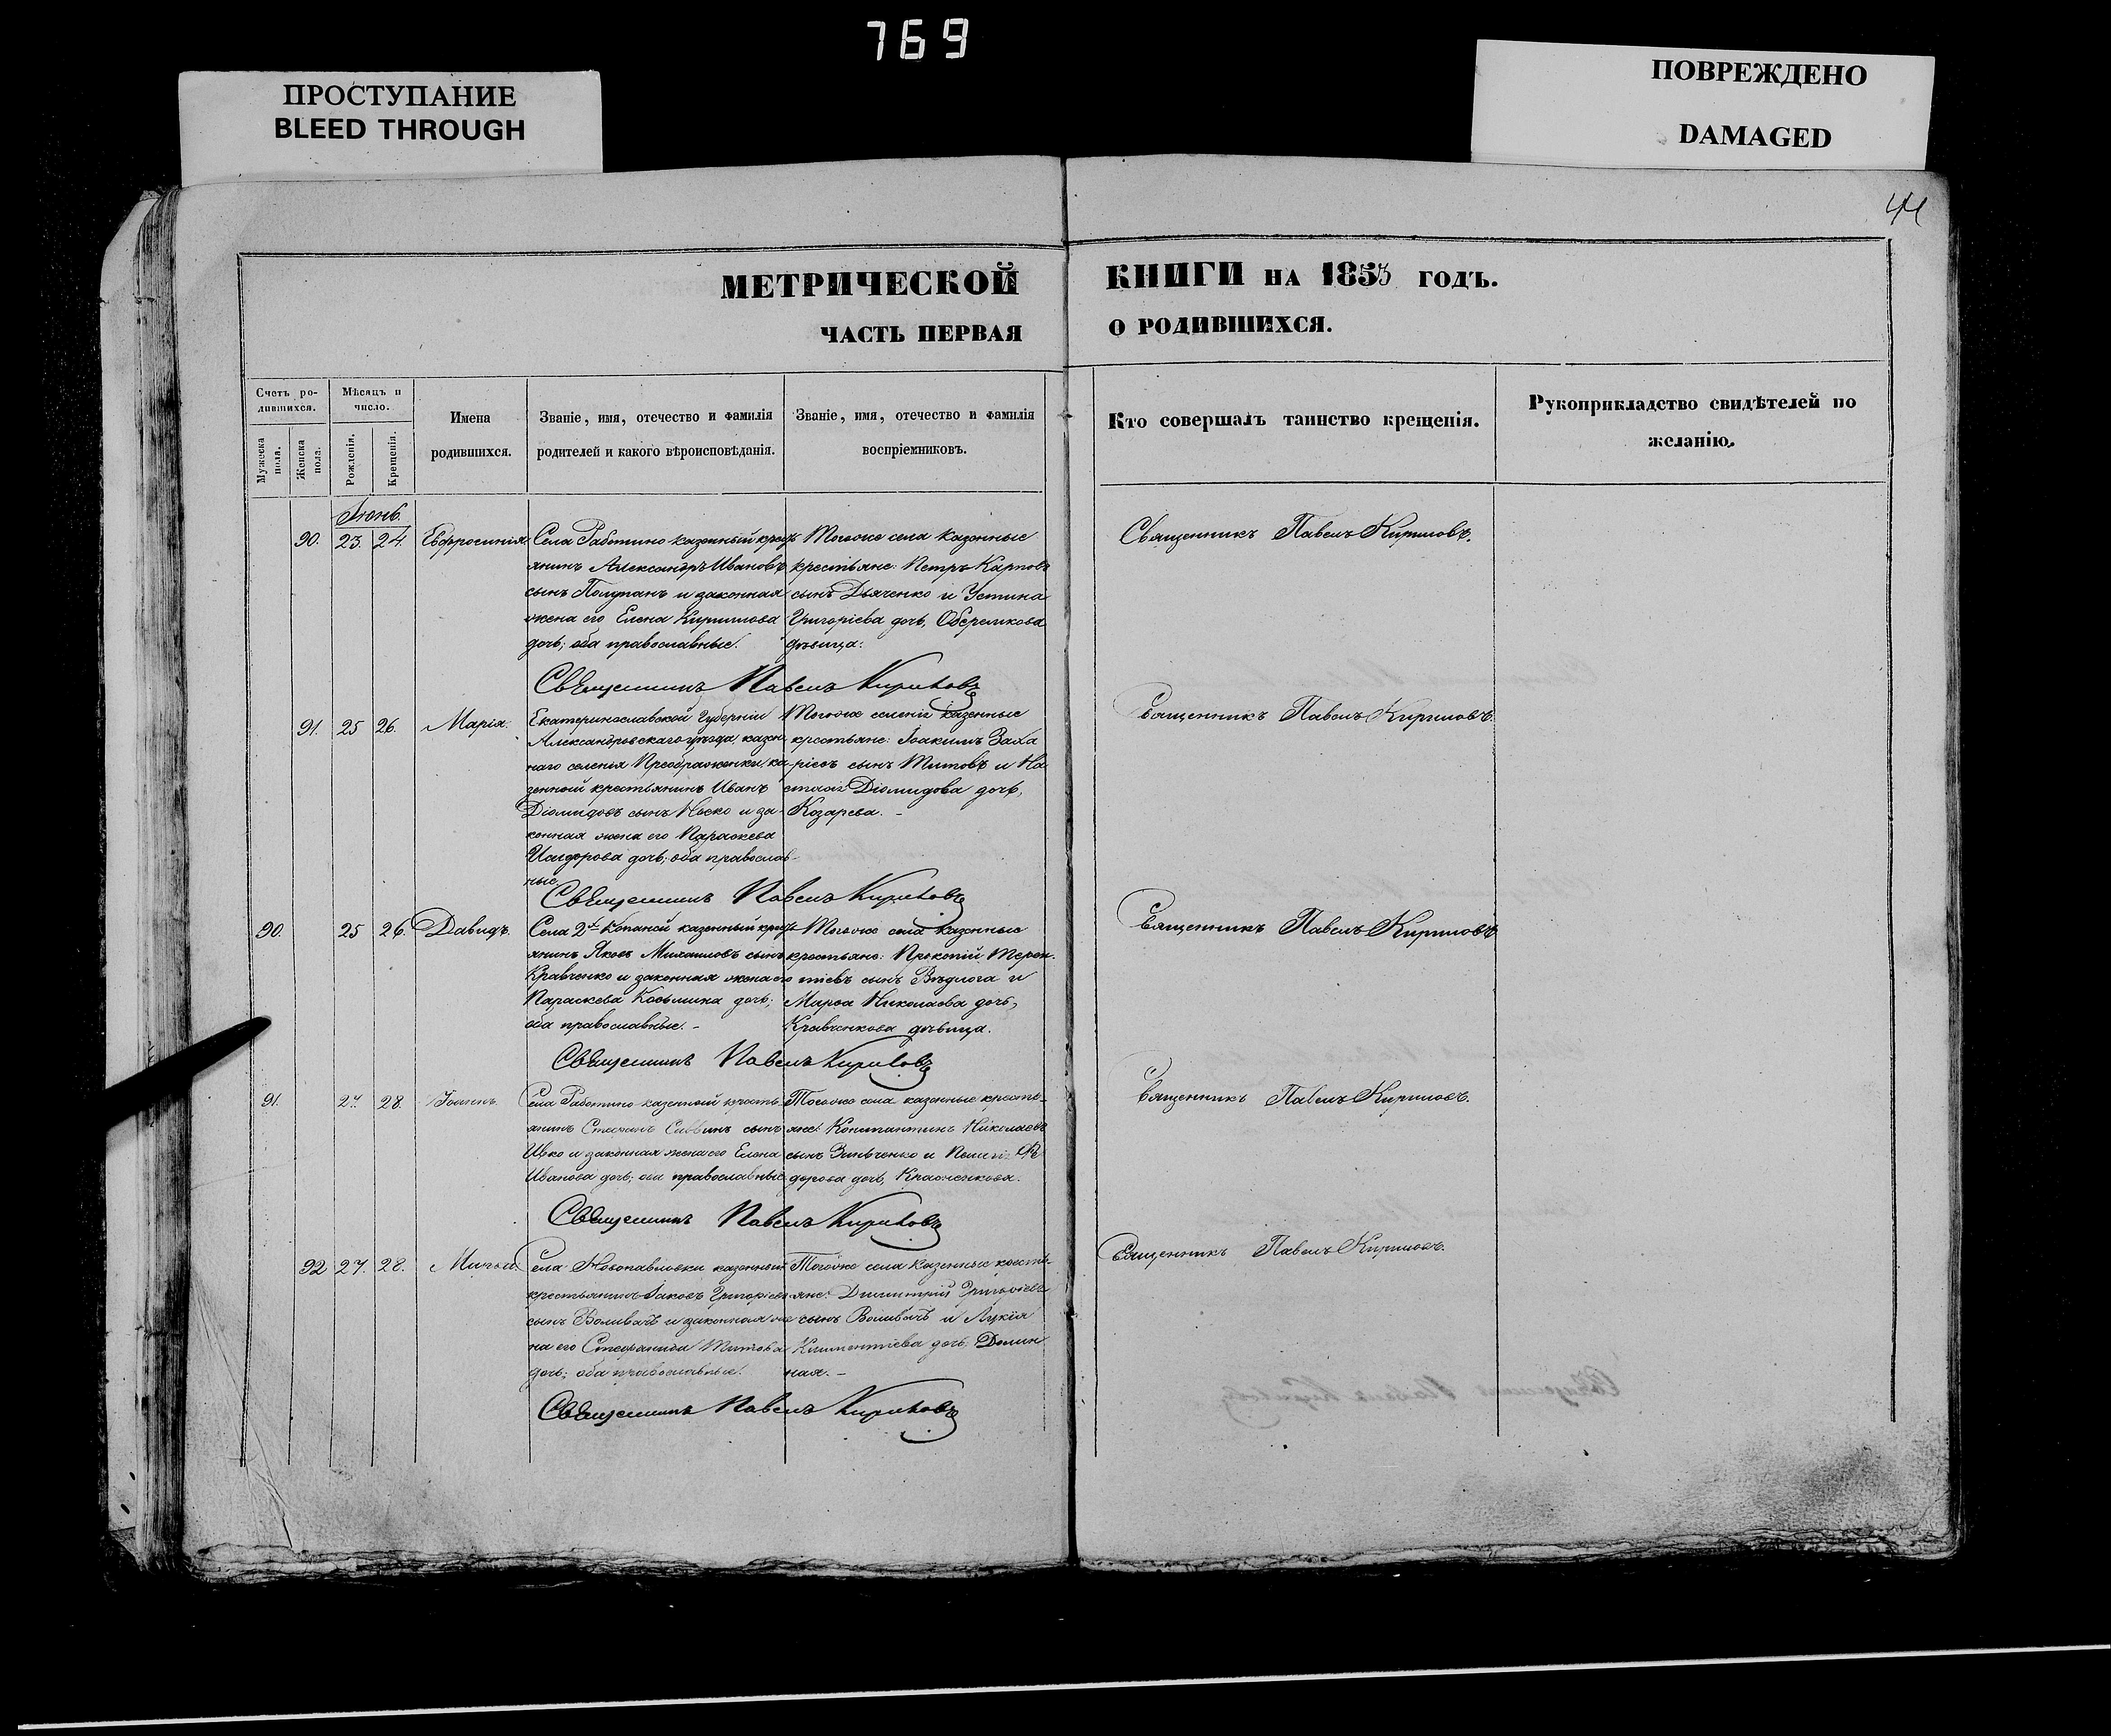 769
ПРОСТУПАНИЕ
BLEED THROUGH
ПОВРЕЖДЕНО
DAMAGED
МЕТРИЧЕСКОЙ КНИГИ НА 1853 ГОДЪ.
ЧАСТЬ ПЕРВАЯ О РОДИВШИХСЯ.
Счетъ ро-
дившихся.
Мужеска пола.
Женска пола.
Мѣсяцъ и
число.
Рожденія.
Крещенія.
Имена
родившихся.
Званіе, имя, отечество и фамилія
родителей и какого вѣроисповѣданія.
Званіе, имя, отечество и фамилія
воспріемниковъ.
Кто совершалъ таинство крещенія.
Рукоприкладство свидѣтелей по
желанію.
Іюнь.
90. 23. 24. Евфросинія
Села Работино казенный кресть
янинъ Александръ Ивановъ
сынъ Полупанъ и законная
жена его Елена Кирилова
дочь; оба православные.
Тогоже села казенные
крестьяне: Петръ Карповъ
сынъ Дьяченко и Устина
Григоріева дочь, Оберемкова
дѣвица.
Священникъ Павелъ Кириловъ.
Священникъ Павелъ Кириловъ
91. 25 26. Марія.
Екатеринославской Губерніи
Александровскаго уѣзда, казен
наго селенія Преображенки ка-
зенный крестьянинъ Иванъ
Діомидовъ сынъ Носко и за-
конная жена его Параскева
Исидорова дочь; оба православ-
ные.
Тогоже селенія казенные
крестьяне: Іоакимъ Заха
ріевъ сынъ Титовъ и На
стасія Діомидова дочь,
Козарева. -
Священникъ Павелъ Кириловъ.
Священникъ Павелъ Кириловъ
90. 25 26. Давидъ.
Села 2й Копаной казенный кресть
янинъ Яковъ Михаиловъ сынъ
Кравченко и законная жена его
Параскева Косьмина дочь;
оба православные. -
Тогоже села казенные
крестьяне: Прокопій Терен-
тіевъ сынъ Бѣдлога и
Марѳа Николаева дочь,
Кравченкова дѣвица.
Священникъ Павелъ Кириловъ
Священникъ Павелъ Кириловъ
91. 27 28.
Села Работино казенный кресть-
янинъ Стефанъ Саввинъ сынъ
Ивко и законная жена его Елена
Иванова дочь; оба православные
Тогоже села казенные кресть-
яне: Константинъ Николаевъ
сынъ Зинченко и Ѳе
дорова дочь,
Священникъ Павелъ Кириловъ.
Священникъ Павелъ Кириловъ
92 27. 28.
Села Новопавловки казенный
крестьянинъ Іаковъ Григоріевъ
сынъ Воливачъ и законная же
на его Стефанида Титова
дочь; оба православные.
Тогоже села казенные кресть-
яне: Димитрій Григоріевъ
сынъ Воливачъ и Лукія
Климентіева дочь, Долин
ная. -
Священникъ Павелъ Кириловъ.
Священникъ Павелъ Кириловъ